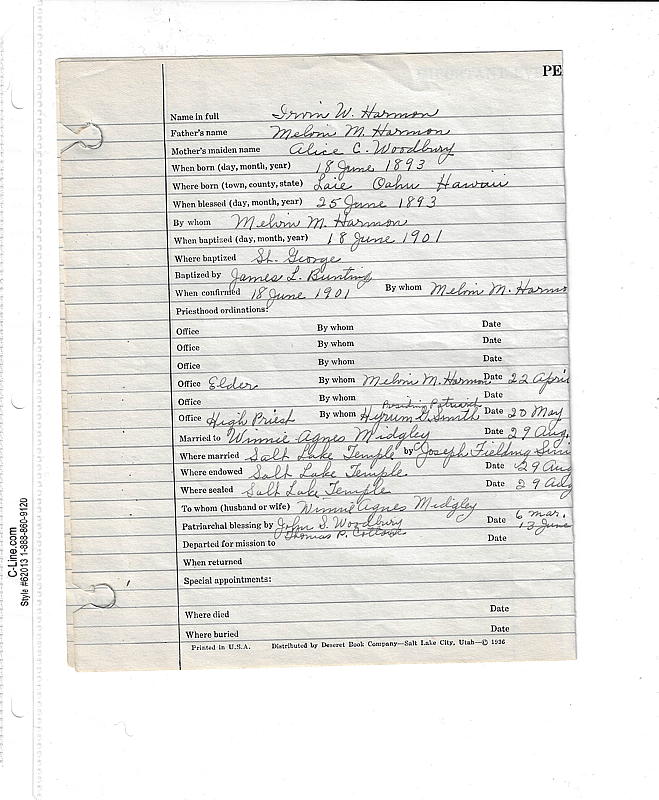 PE
Name in full Irvin W. Harmon
Father's name Melvin M. Harmon
Mother's maiden name Alice C. Woodbury
When born (day, month, year) 18 June 1893
Where born (town, county, state) Laie Oahu Hawaii
When blessed (day, month, year) 25 June 1893
By whom Melvin M. Harmon
When baptized (day, month, year) 18 June 1901
Where baptized St. George
Baptized by James L. Bunting
When confirmed 18 June 1901 By whom Melvin M. Harmo
Priesthood ordinations:
Office By whom Date
Office By whom Date
Office By whom Date
Office Elder By whom Melvin M. Harmon Date 22 Apri
Office By whom Date
Presiding Patriarch
Office High Priest By whom Hyrum G. Smith Date 20 May
Married to Winnie Agnes Midgley Date 29 Aug.
Where married Salt Lake Temple by Joseph Fielding Smi
Where endowed Salt Lake Temple Date 29 Aug
Where sealed Salt Lake Temple Date 29 Aug
To whom (husband or wife) Winnie Agnes Midgley
Patriarchal blessing by John S. Woodbury Date 6 Mar.
Thomas P. 13 June
Departed for mission to Date
When returned
Special appointments:
Where died Date
Where buried Date
Printed in U.S.A. Distributed by Deseret Book Company—Salt Lake City, Utah—© 1936
C-Line.com
Style #62013 1-888-860-9120